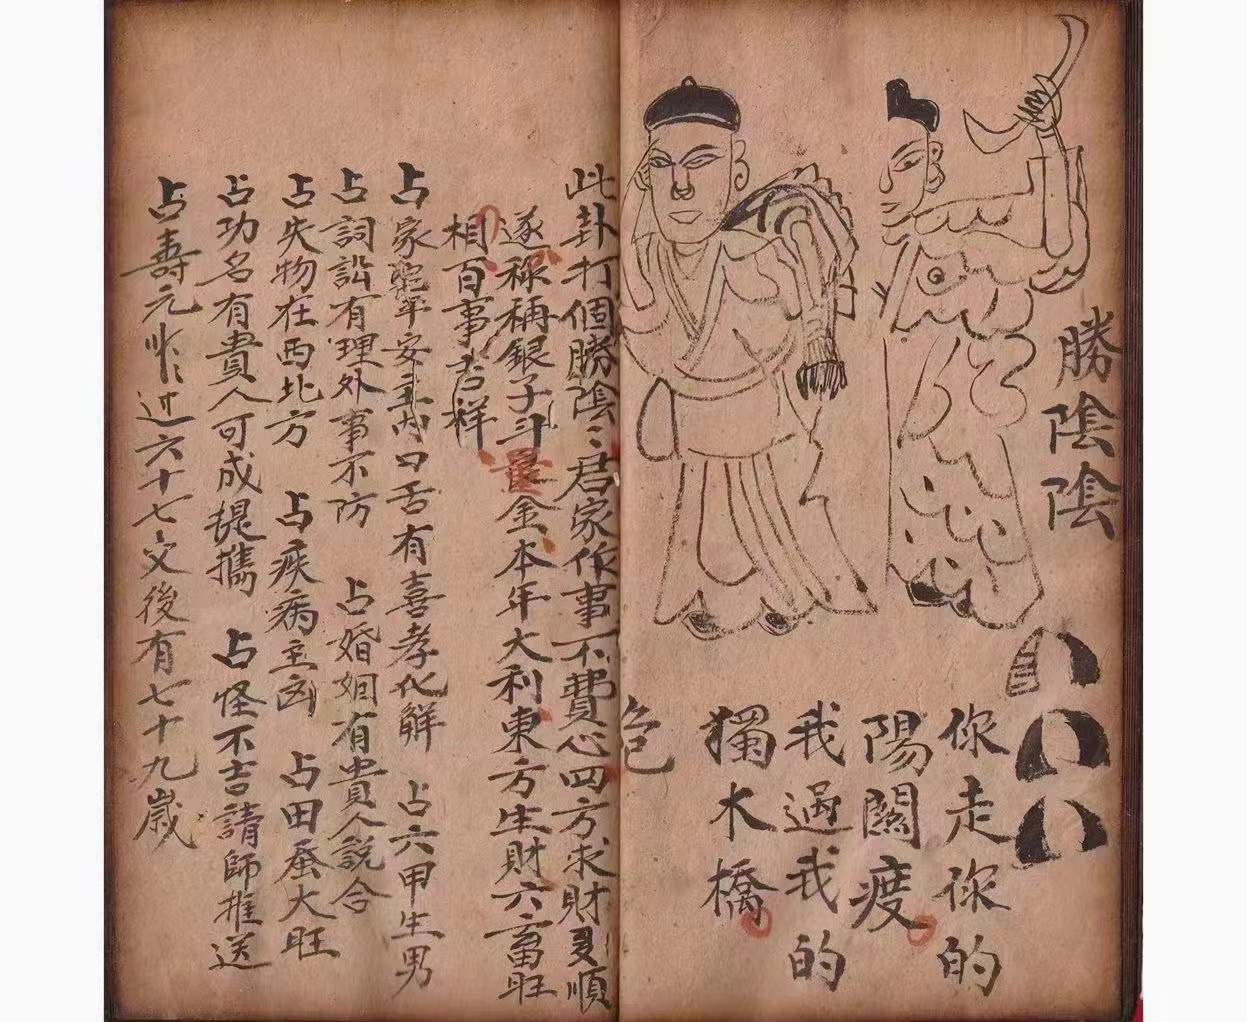 勝陰陰
你走你的
陽關度
我過我的
獨木橋
色
此卦打個勝陰：君家作事不費心四方求財多順
遂秤稱銀子斗量金本年大利東方生財六畜旺
相百事吉祥
占家宅平安主內口舌有喜孝化解 占六甲生男
占詞訟有理外事不防 占婚姻有貴人說合
占失物在西北方 占疾病主凶 占田蚕大旺
占功名有貴人可成提攜 占怪不吉請師推送
占壽元 过六十七交後有七十九歲